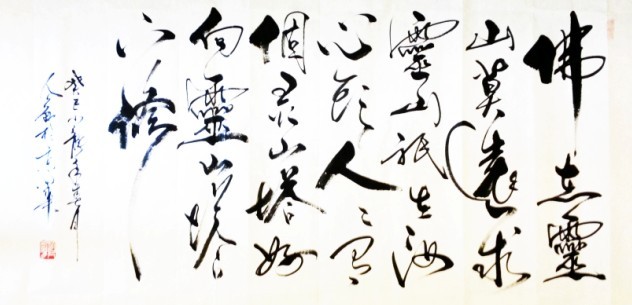 佛在靈
山莫遠求
靈山祇在汝
心頭人人有
個灵山塔好
向靈山塔
下修
癸巳小龍年春月